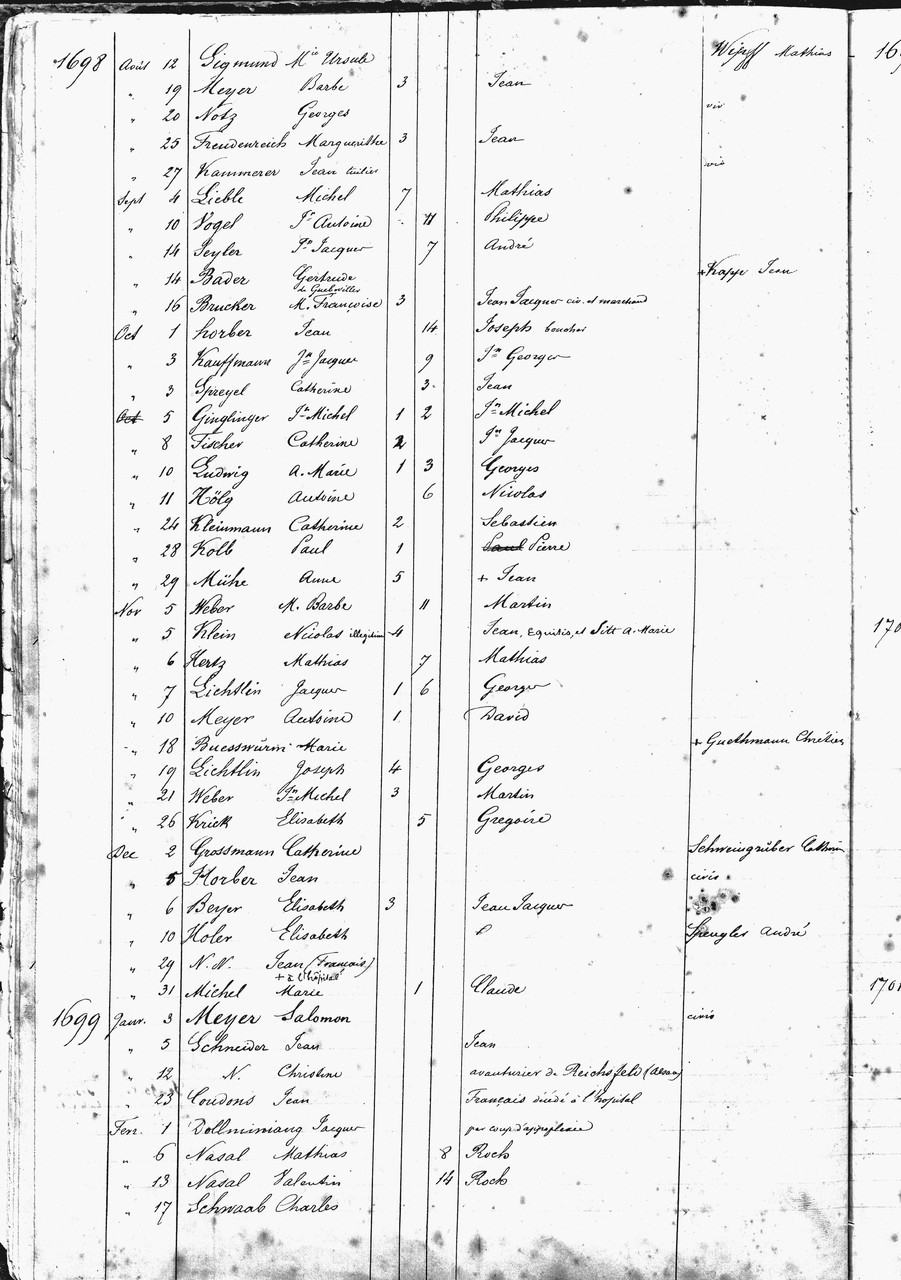 1698 Août 12 Sigmund Mie Ursule Wipff Mathias
" 19 Meyer Barbe 3 Jean
" 20 Notz Georges civ
" 25 Freudenreich Margueritte 3 Jean
" 27 Kammerer Jean civis
Sept 4 Lieble Michel 7 Mathias
" 10 Vogel Jn Antoine 11 Philippe
" 14 Seyler Jn Jacques 7 André
" 14 Bader Gertrude + Kapp Jean
de Guebwiller
" 16 Brucker M. Françoise 3 Jean Jacques civ. et marchand
Oct 1 horber Jean 14 Joseph boucher
" 3 Kauffmann Jn Jacques 9 Jn Georges
" 3 Spreyel Catherine 3 Jean
Oct 5 Ginglinger Jn Michel 1 2 Jn Michel
" 8 Fischer Catherine 2 Jn Jacques
" 10 Ludwig A. Marie 1 3 Georges
" 11 Hölg Antoine 6 Nicolas
" 24 Kleinmann Catherine 2 Sebastien
" 28 Kolb Paul 1 Paul Pierre
" 29 Mühe Anne 5 + Jean
Nov 5 Weber M. Barbe 11 Martin
" 5 Klein Nicolas illegitim 4 Jean, Equitis, et Sitt A. Marie
" 6 Hertz Mathias 7 Mathias
" 7 Lichtlin Jacques 1 6 Georges
" 10 Meyer Antoine 1 David
" 18 Buesswürm Marie + Guethmann Chrétien
" 19 Lichtlin Joseph 4 Georges
" 21 Weber Jn Michel 3 Martin
" 26 Krick Elisabeth 5 Gregoire
Dec 2 Grossmann Catherine Schweingrüber
" 5 Horber Jean civis
" 6 Beyer Elisabeth 3 Jean Jacques
" 10 Holer Elisabeth Spengler André
" 29 N. N. Jean (Français)
+ à l'hôpital
" 31 Michel Marie 1 Claude
1699 Janv. 3 Meyer Salomon civis
" 5 Schneider Jean Jean
" 12 N. Christine avanturier de Reichsfeld
" 23 Coudons Jean Français à l'hopital
Fevr. 1 Jacques par coup d'appoplexie
" 6 Nasal Mathias 8 Rock
" 13 Nasal Valentin 14 Rock
" 17 Schwaab Charles